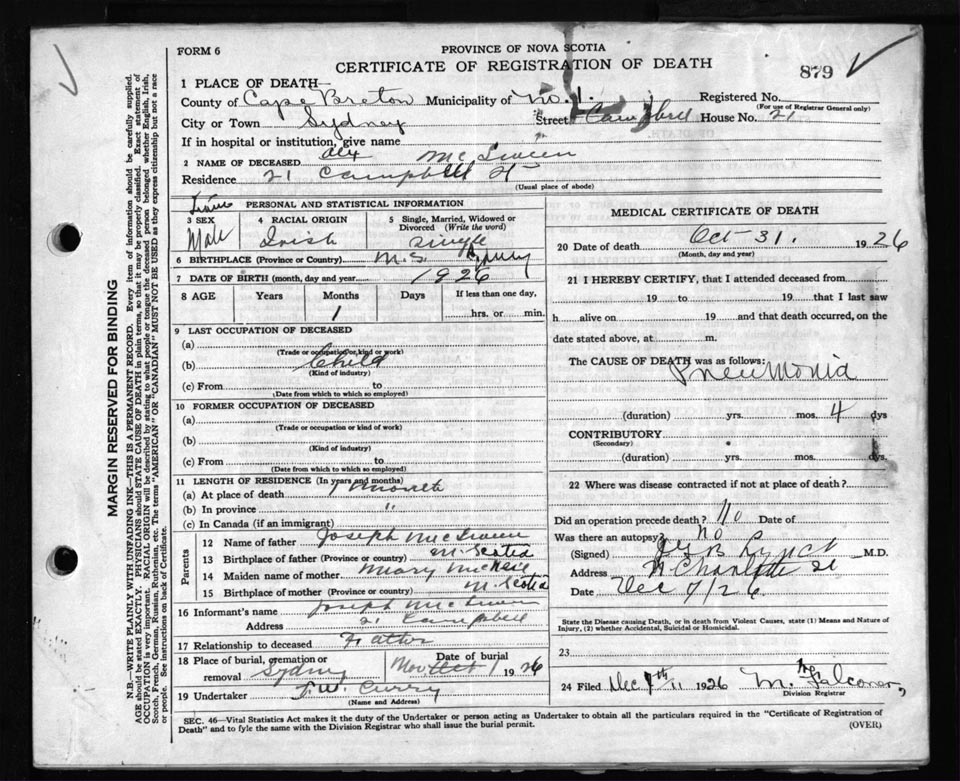 FORM 6
PROVINCE OF NOVA SCOTIA
CERTIFICATE OF REGISTRATION OF DEATH
879
1 PLACE OF DEATH
County of Cape Breton Municipality of No. 1. Registered No.
(For use of Registrar General only)
City or Town Sydney Street Campbell House No. 21
If in hospital or institution, give name
2 NAME OF DECEASED Alex
Residence 21 Campbell St
(Usual place of abode)
PERSONAL AND STATISTICAL INFORMATION
3 SEX Male
4 RACIAL ORIGIN Irish
5 Single, Married, Widowed or Divorced (Write the word) Single
6 BIRTHPLACE (Province or Country) N.S. Sydney
7 DATE OF BIRTH (month, day and year) 1926
8 AGE Years Months Days If less than one day,
1 hrs. or min.
9 LAST OCCUPATION OF DECEASED
(a)
(Trade or occupation or kind or work)
(b) Child
(Kind of industry)
(c) From to
(Date from which to which so employed)
10 FORMER OCCUPATION OF DECEASED
(a)
(Trade or occupation or kind of work)
(b)
(Kind of industry)
(c) From to
(Date from which to which so employed)
11 LENGTH OF RESIDENCE (In years and months)
(a) At place of death 1 month
(b) In province "
(c) In Canada (if an immigrant)
Parents
12 Name of father Joseph
13 Birthplace of father (Province or country) N. Scotia
14 Maiden name of mother Mary McNeil
15 Birthplace of mother (Province or country) N. Scotia
16 Informant's name Joseph
Address 21 Campbell
17 Relationship to deceased Father
18 Place of burial, cremation or removal Sydney Date of burial Nov Oct 1 1926
19 Undertaker Curry
(Name and Address)
MEDICAL CERTIFICATE OF DEATH
20 Date of death Oct 31. 1926
(Month, day and year)
21 I HEREBY CERTIFY, that I attended deceased from
19 to 19 that I last saw
h alive on 19 and that death occurred, on the
date stated above, at m.
The CAUSE OF DEATH was as follows:
Pneumonia
(duration) yrs. mos. 4 dys
CONTRIBUTORY
(Secondary)
(duration) yrs. mos. dys.
22 Where was disease contracted if not at place of death?
Did an operation precede death? No Date of
Was there an autopsy? No
(Signed) Lynch M.D.
Address Charlotte St
Date Dec 7/26
State the Disease causing Death, or in death from Violent Causes, state (1) Means and Nature of
Injury, (2) whether Accidental, Suicidal or Homicidal.
23
24 Filed Dec 11 1926 M. Falconer,
Division Registrar
SEC. 46—Vital Statistics Act makes it the duty of the Undertaker or person acting as Undertaker to obtain all the particulars required in the "Certificate of Registration of
Death" and to fyle the same with the Division Registrar who shall issue the burial permit.
(OVER)
MARGIN RESERVED FOR BINDING
N.B.—WRITE PLAINLY WITH UNFADING INK—THIS IS A PERMANENT RECORD. Every item of information should be carefully supplied.
AGE should be stated EXACTLY. PHYSICIANS should STATE CAUSE OF DEATH in plain terms, so that it may be properly classified. Exact statement of
OCCUPATION is very important. RACIAL ORIGIN will be described by stating to what people or tongue the deceased person belonged whether English, Irish,
Scotch, French, German, Russian, Ruthenian, etc. The terms "AMERICAN" OR "CANADIAN" MUST NOT BE USED as they express citizenship but not a race
or people. See instructions on back of Certificate.